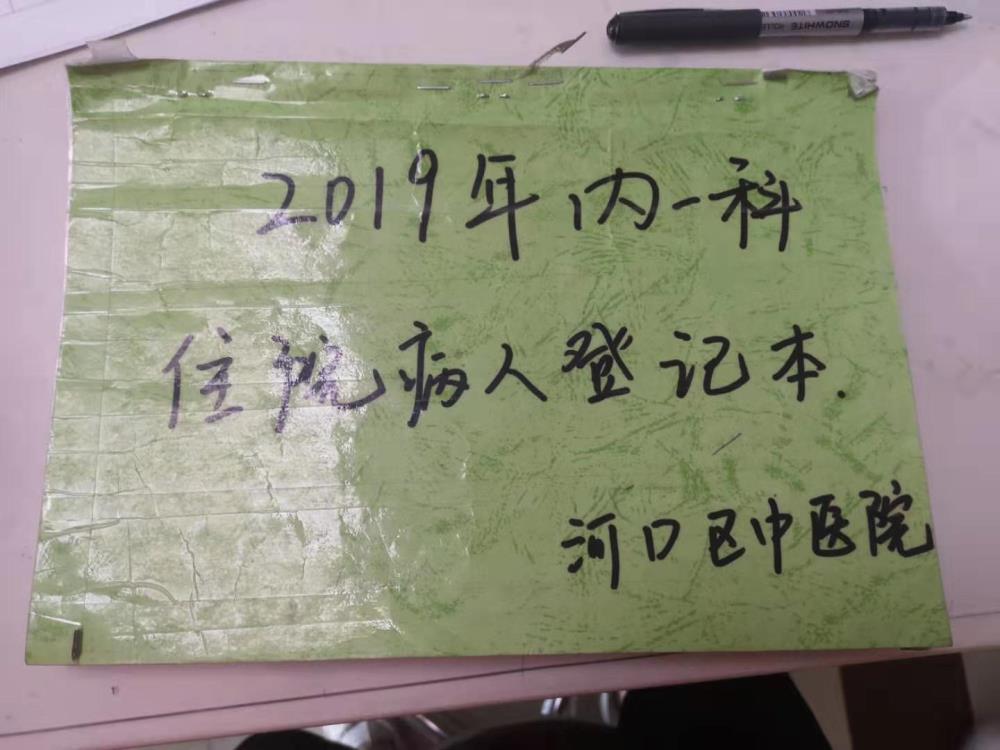 SNOWHITE
2019年内一科
住院病人登记本.
河口区中医院